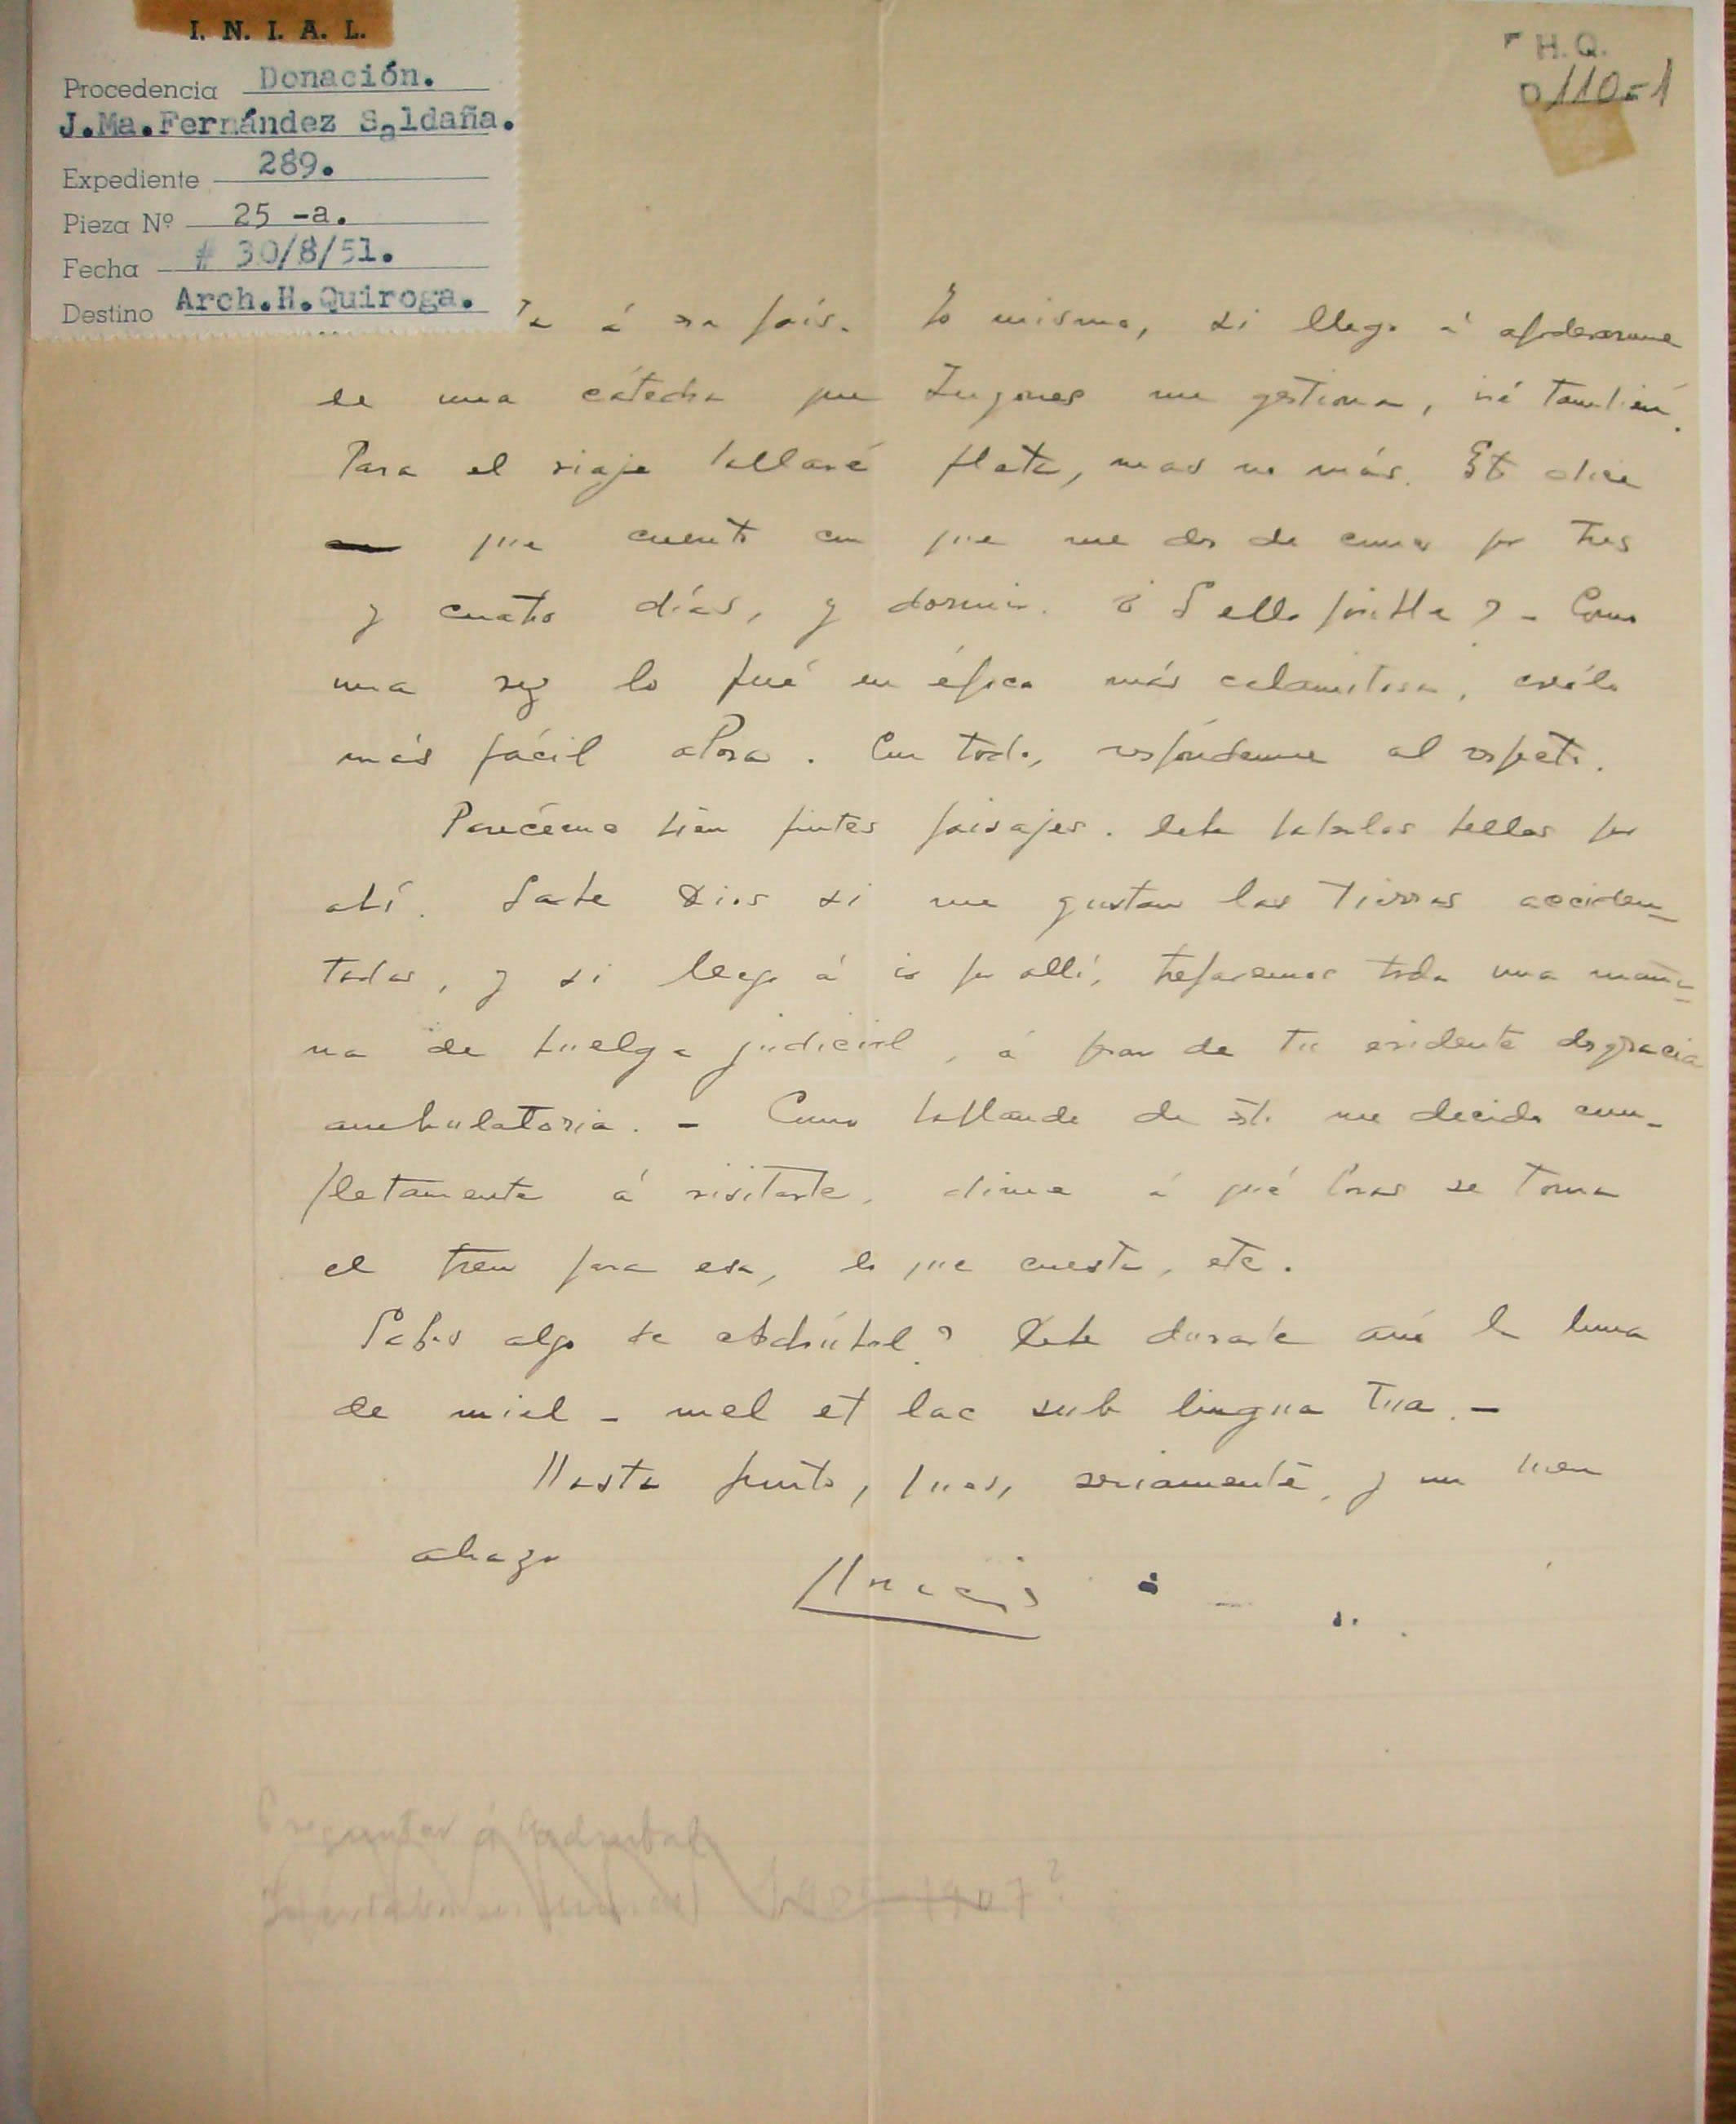 I. N. I. A. L.
Procedencia Donación.
J.Ma.Fernández Saldaña.
Expediente 289.
Pieza Nº 25 -a.
Fecha 30/8/51.
Destino Arch.H.Quiroga.
H.Q.
D 110-1
á su país. Yo mismo, si llego á apoderarme
de una cátedra que Lugones me gestiona, iré también.
Para el viaje hallaré plata, mas no más. Esto dice
que cuento con que me des de comer por tres
y cuatro días, y dormir. ¿Es ello posible? - Como
una vez lo fué en época más calamitosa, creólo
más fácil ahora. Con todo, respóndeme al respecto.
Paréceme bien pintes paisajes. Debe haberlos bellos por
ahí. Sabe Dios si me gustan las tierras acciden-
tadas, y si llego á ir por allí, treparemos toda una maña-
na de huelga judicial, á pesar de tu evidente desgracia
ambulatoria. - Como hablando de esto me decido com-
pletamente á visitarte, dime á qué horas se toma
el tren para esa, lo que cuesta, etc.
Sabes algo de Asdrúbal? Debe durarle aún la luna
de miel - mel et lac sub lingua tua. -
Hasta pronto, pues, seriamente, y un buen
abrazo
Horacio
Preguntar á Asdrubal
1907?